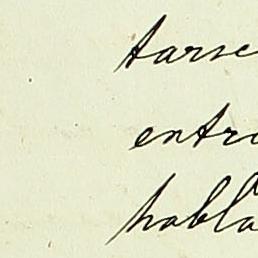 tarse
entr
habla